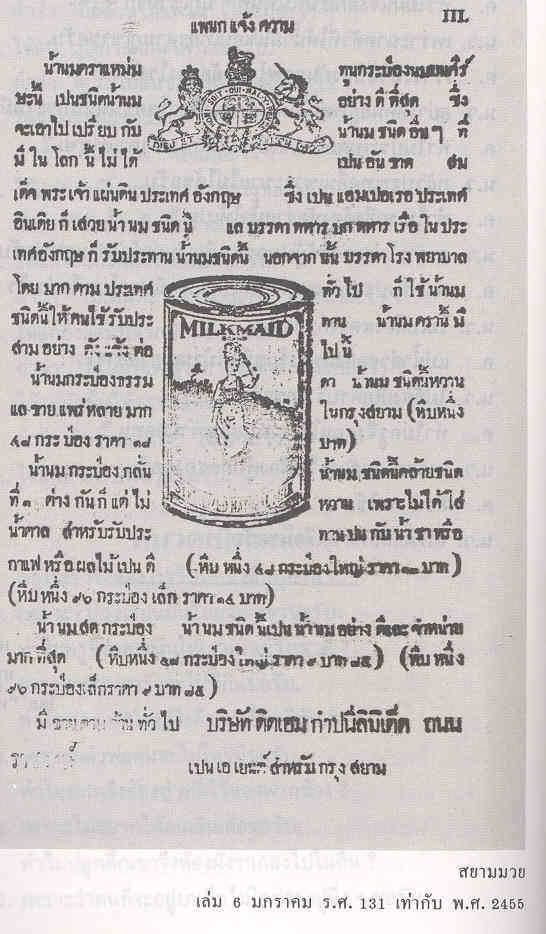 III.
แพนก แจ้ง ความ
น้ำนมตราแหม่ม ทูนกระบ๋อง
ษะนี้ เปนชนิดน้ำนม อย่าง ดี ที่สุด ซึ่ง
จะเอาไป เปรียบ กับ น้ำนม ชนิด อื่น ๆ ที่
มี ใน โลก นี้ ไม่ ได้ เปน อัน ขาด สม
เด็จ พระ เจ้า แผ่นดิน ประเทศ อังกฤษ ซึ่ง เปน แอมเปอเรอ ประเทศ
อินเดีย ก็ เสวย น้ำ นม ชนิด นี้ แล บรรดา ทหาร บก ทหาร เรือ ใน ประ
เทศอังกฤษ ก็ รับประทาน น้ำนมชนิดนี้ นอกจาก นั้น บรรดา โรง พยาบาล
โดย มาก ตาม ประเทศ ทั่ว ไป ก็ ใช้ น้ำนม
ชนิดนี้ให้คนไข้รับประ ทาน น้ำนม ตรานี้ มี
สาม อย่าง ดัง แจ้ง ต่อ ไป นี้
MILKMAID
น้ำนมกระป๋องธรรม ดา น้ำนม ชนิดนี้หวาน
แล ขาย แพร่ หลาย มาก ในกรุงสยาม (หีบหนึ่ง
๔๘ กระ ป๋อง ราคา ๑๘ บาท)
น้ำนม กระป๋อง กลั่น น้ำนม ชนิดนี้คล้ายชนิด
ที่ ๑ ต่าง กัน ก็ แต่ ไม่ หวาน เพราะไม่ได้ ใส่
น้ำตาล สำหรับรับประ ทาน ปน กับ น้ำ ชา หรือ
กาแฟ หรือ ผลไม้ เปน ดี (หีบ หนึ่ง ๔๘ กระป๋องใหญ่ ราคา ๑๓ บาท)
(หีบ หนึ่ง ๙๖ กระป๋อง เล็ก ราคา ๑๔ บาท)
น้ำ นม สด กระป๋อง น้ำ นม ชนิด นี้เปน น้ำนม อย่าง ดีและ จำหน่าย
มาก ที่สุด (หีบหนึ่ง ๔๘ กระป๋อง ใหญ่ ราคา ๙ บาท ๘๕) (หีบ หนึ่ง
๙๖ กระป๋องเล็กราคา ๙ บาท ๘๕)
มี ขายตาม ห้าง ทั่ว ไป บริษัท ดิตแฮม กำปนีลิมิเต็ด ถนน
เปน เอ เยนต์ สำหรับ กรุง สยาม
สยามมวย
เล่ม 6 มกราคม ร.ศ. 131 เท่ากับ พ.ศ. 2455